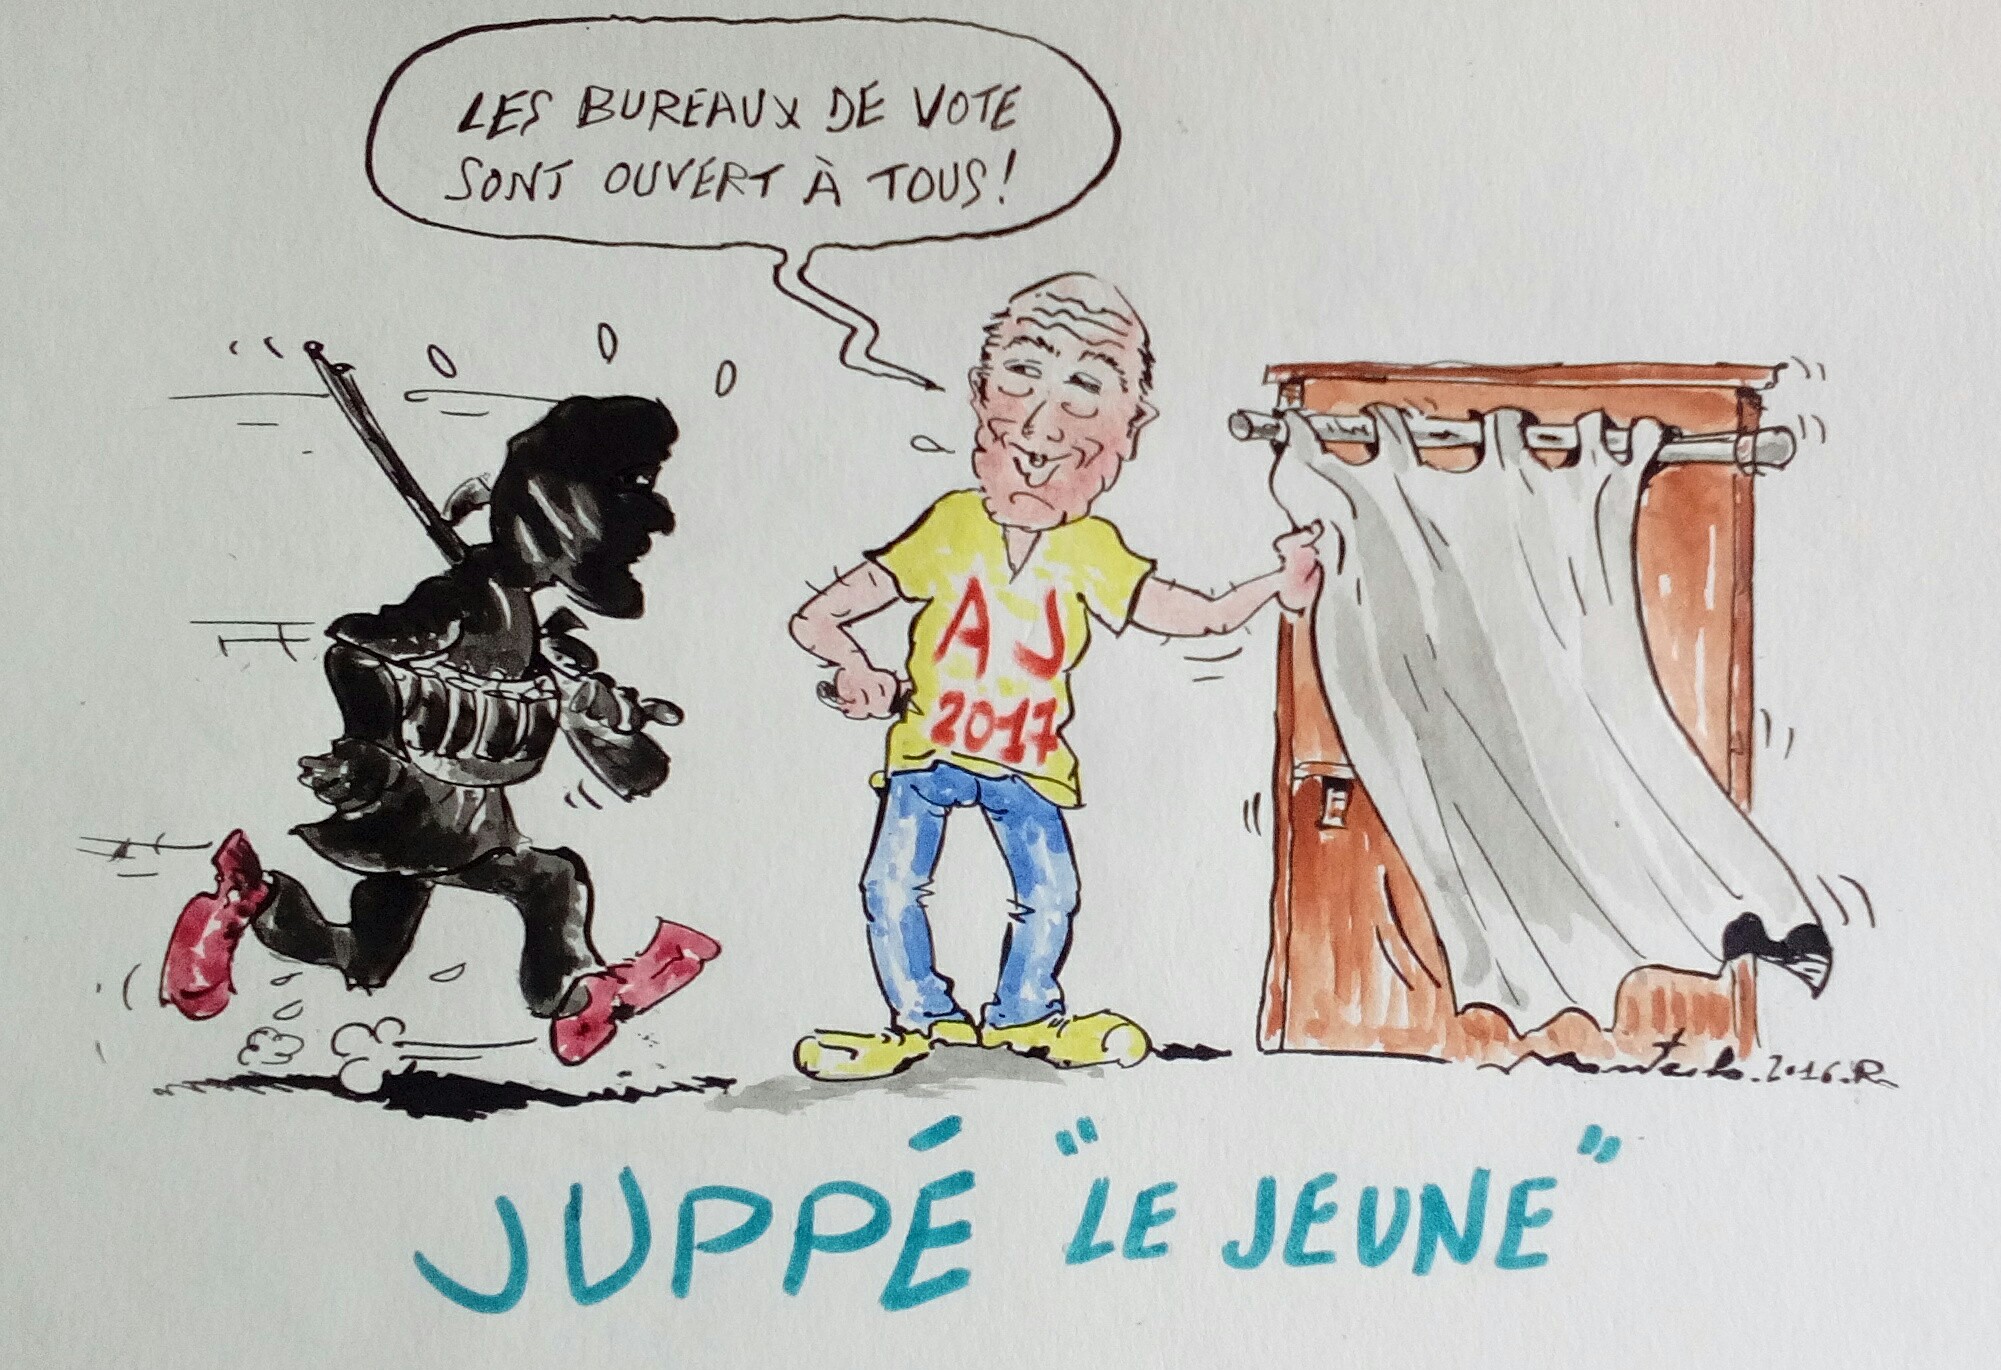 LES BUREAUX DE VOTE
SONT OUVERT À TOUS!
AJ
2017
.2016.R
JUPPÉ "LE JEUNE"